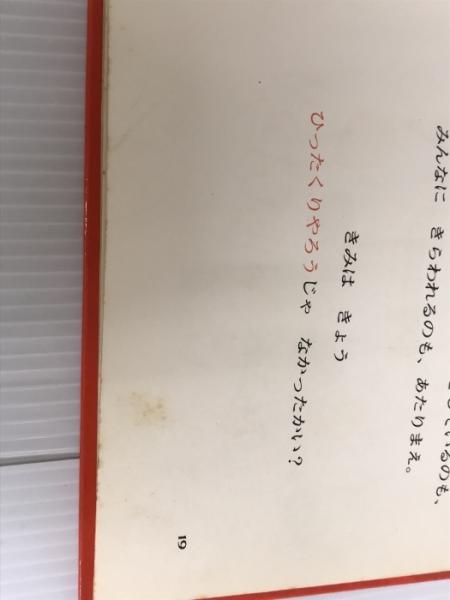 しているのも、
みんなに きらわれるのも、あたりまえ。
きみは きょう
ひったくりやろうじゃ なかったかい?
19